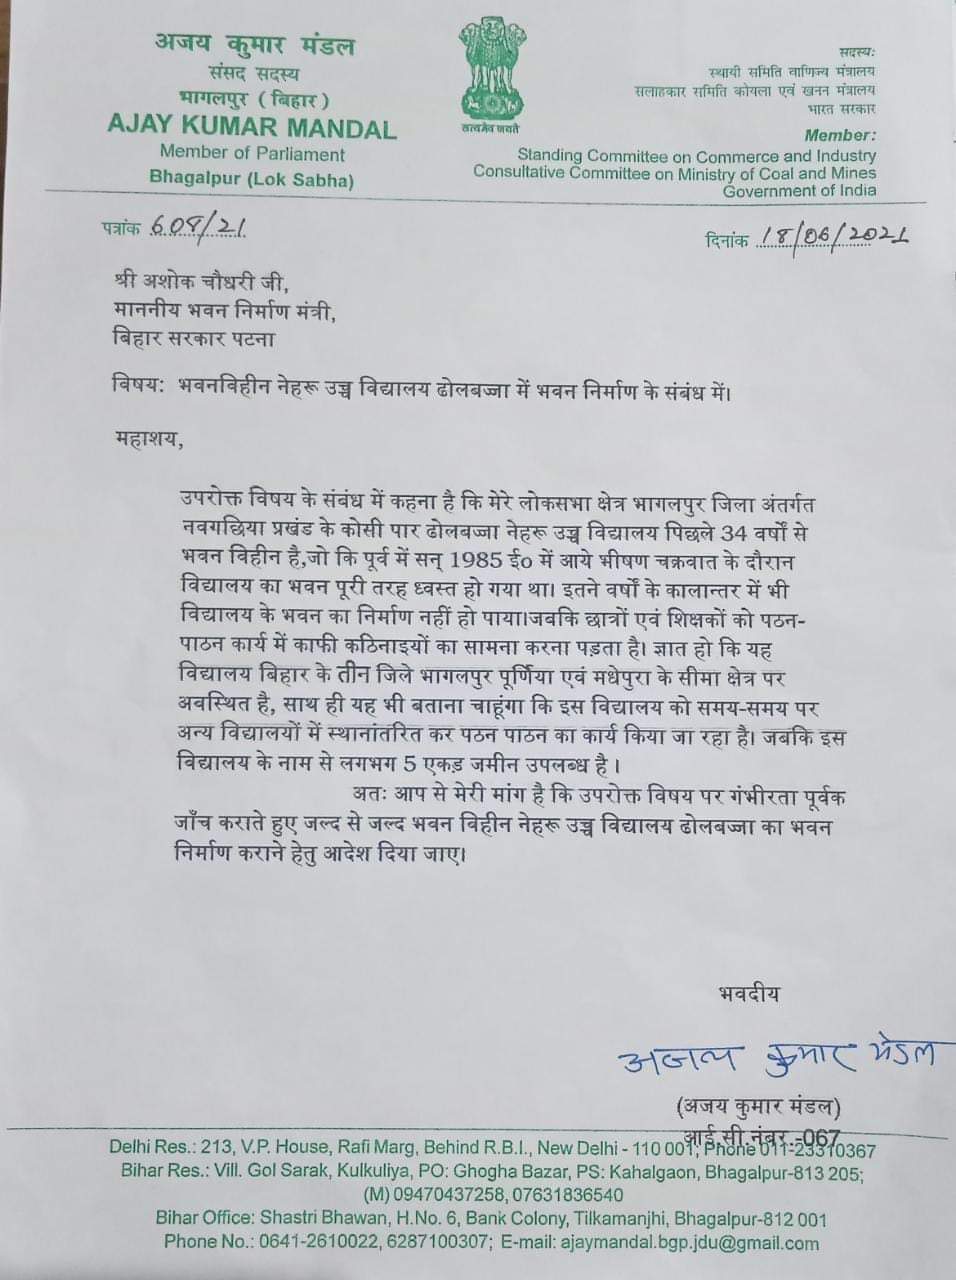 अजय कुमार मंडल
संसद सदस्य
भागलपुर ( बिहार )
AJAY KUMAR MANDAL
Member of Parliament
Bhagalpur (Lok Sabha)
सत्यमेव जयते
सदस्यः
स्थायी समिति वाणिज्य मंत्रालय
सलाहकार समिति कोयला एवं खनन मंत्रालय
भारत सरकार
Member:
Standing Committee on Commerce and Industry
Consultative Committee on Ministry of Coal and Mines
Government of India
पत्रांक 608/21
दिनांक 18/06/2021
श्री अशोक चौधरी जी,
माननीय भवन निर्माण मंत्री,
बिहार सरकार पटना
विषय: भवनविहीन नेहरू उच्च विद्यालय ढोलबज्जा में भवन निर्माण के संबंध में।
महाशय,
उपरोक्त विषय के संबंध में कहना है कि मेरे लोकसभा क्षेत्र भागलपुर जिला अंतर्गत
नवगछिया प्रखंड के कोसी पार ढोलबज्जा नेहरू उच्च विद्यालय पिछले 34 वर्षों से
भवन विहीन है,जो कि पूर्व में सन् 1985 ई० में आये भीषण चक्रवात के दौरान
विद्यालय का भवन पूरी तरह ध्वस्त हो गया था। इतने वर्षों के कालान्तर में भी
विद्यालय के भवन का निर्माण नहीं हो पाया।जबकि छात्रों एवं शिक्षकों को पठन-
पाठन कार्य में काफी कठिनाइयों का सामना करना पड़ता है। ज्ञात हो कि यह
विद्यालय बिहार के तीन जिले भागलपुर पूर्णिया एवं मधेपुरा के सीमा क्षेत्र पर
अवस्थित है, साथ ही यह भी बताना चाहूंगा कि इस विद्यालय को समय-समय पर
अन्य विद्यालयों में स्थानांतरित कर पठन पाठन का कार्य किया जा रहा है। जबकि इस
विद्यालय के नाम से लगभग 5 एकड़ जमीन उपलब्ध है ।
अतः आप से मेरी मांग है कि उपरोक्त विषय पर गंभीरता पूर्वक
जाँच कराते हुए जल्द से जल्द भवन विहीन नेहरू उच्च विद्यालय ढोलबज्जा का भवन
निर्माण कराने हेतु आदेश दिया जाए।
भवदीय
अजय कुमार मंडल
(अजय कुमार मंडल)
आई.सी.नंबर.-067
Delhi Res.: 213, V.P. House, Rafi Marg, Behind R.B.I., New Delhi - 110 001, Phone 011-23310367
Bihar Res.: Vill. Gol Sarak, Kulkuliya, PO: Ghogha Bazar, PS: Kahalgaon, Bhagalpur-813 205;
(M) 09470437258, 07631836540
Bihar Office: Shastri Bhawan, H.No. 6, Bank Colony, Tilkamanjhi, Bhagalpur-812 001
Phone No.: 0641-2610022, 6287100307; E-mail: ajaymandal.bgp.jdu@gmail.com